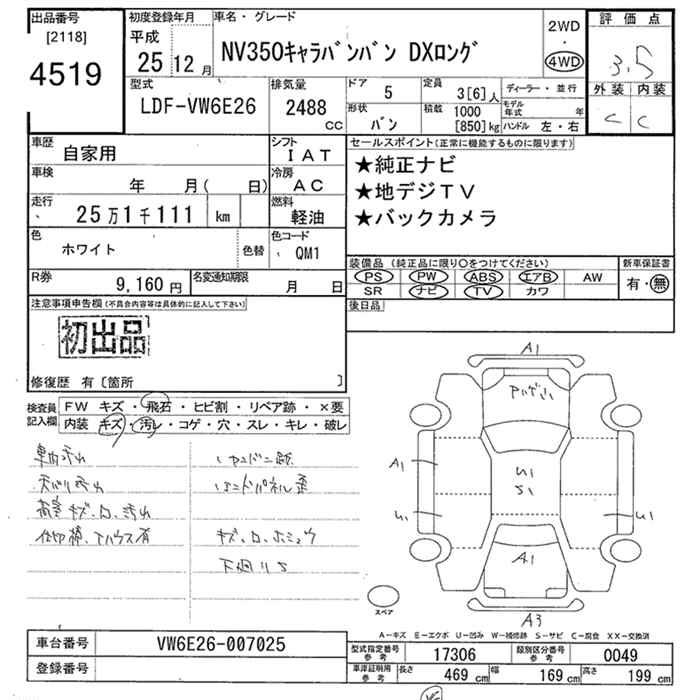 出品番号
[2118]
4519
初度登録年月
平成
25 12月
車名・グレード
NV350キャラバンバン DXロング
2WD
・
4WD
評価点
3.5
外装 内装
C C
型式
LDF-VW6E26
排気量
2488
CC
ドア
5
定員
3[6]人
ディーラー・並行
形状
バン
積載
1000
[850]kg
モデル
年式 年
ハンドル 左・右
車歴
自家用
シフト
IAT
セールスポイント(正常に機能するものに限ります)
★純正ナビ
★地デジTV
★バックカメラ
車検
年 月( 日)
冷房
AC
走行
25万1千111 km
燃料
軽油
色
ホワイト
色替
色コード
QM1
装備品(純正品に限り○をつけてください)
PS PW ABS エアB AW
SR ナビ TV カワ
新車保証書
有・無
R券
9,160円
名変通知期限
月 日
後日品
注意事項申告欄(不具合内容等は具体的に記入して下さい)
初出品
修復歴 有〔箇所 〕
検査員
記入欄
FW キズ・飛石・ヒビ割・リペア跡・×要
内装 キズ・汚レ・コゲ・穴・スレ・キレ・破レ
車内汚れ
天バリ汚れ
荷室キズ、凹、汚れ
キズ、凹、
下廻りS
A1
A1
U1
U1
S1
U1
A1
A3
スペア
A-キズ E-エクボ U-凹み W-補修跡 S-サビ C-腐食 XX-交換済
車台番号
VW6E26-007025
登録番号
型式指定番号
参考
17306
類別区分番号
参考
0049
車庫証明用
参考
長さ
469 cm
幅
169 cm
高さ
199 cm